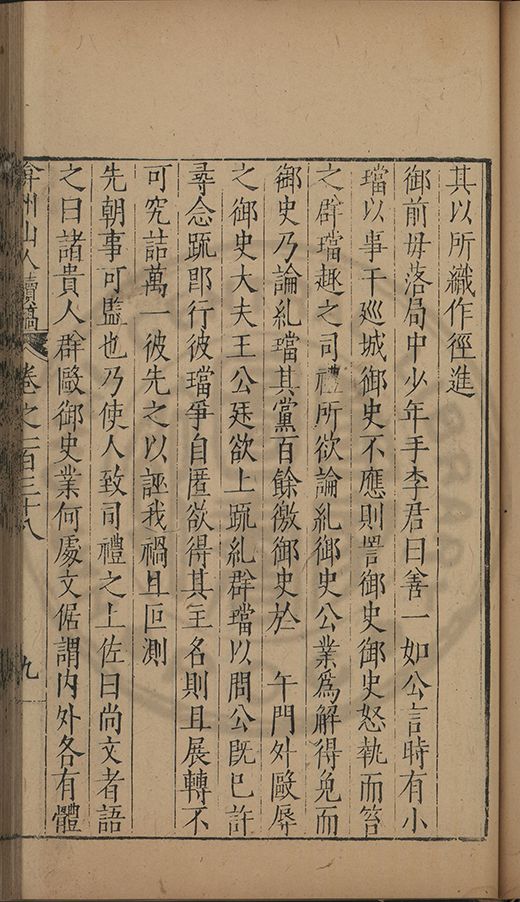 其以所織作徑進
御前毋落局中少年手李君曰善一如公言時有小
璫以事干廵城御史不應則詈御史御史怒執而笞
之群璫趣之司禮所欲論糺御史公業爲解得免而
御史乃論糺璫其黨百餘徼御史於 午門外毆辱
之御史大夫王公廷欲上疏糺群璫以問公旣已許
尋念疏卽行彼璫爭自匿欲得其主名則且展轉不
可究詰萬一彼先之以誣我禍且叵測
先朝事可監也乃使人致司禮之上佐曰尚文者語
之曰諸貴人群毆御史業何處文倨謂內外各有體
弇州山人續稿 卷之一百三十八 九